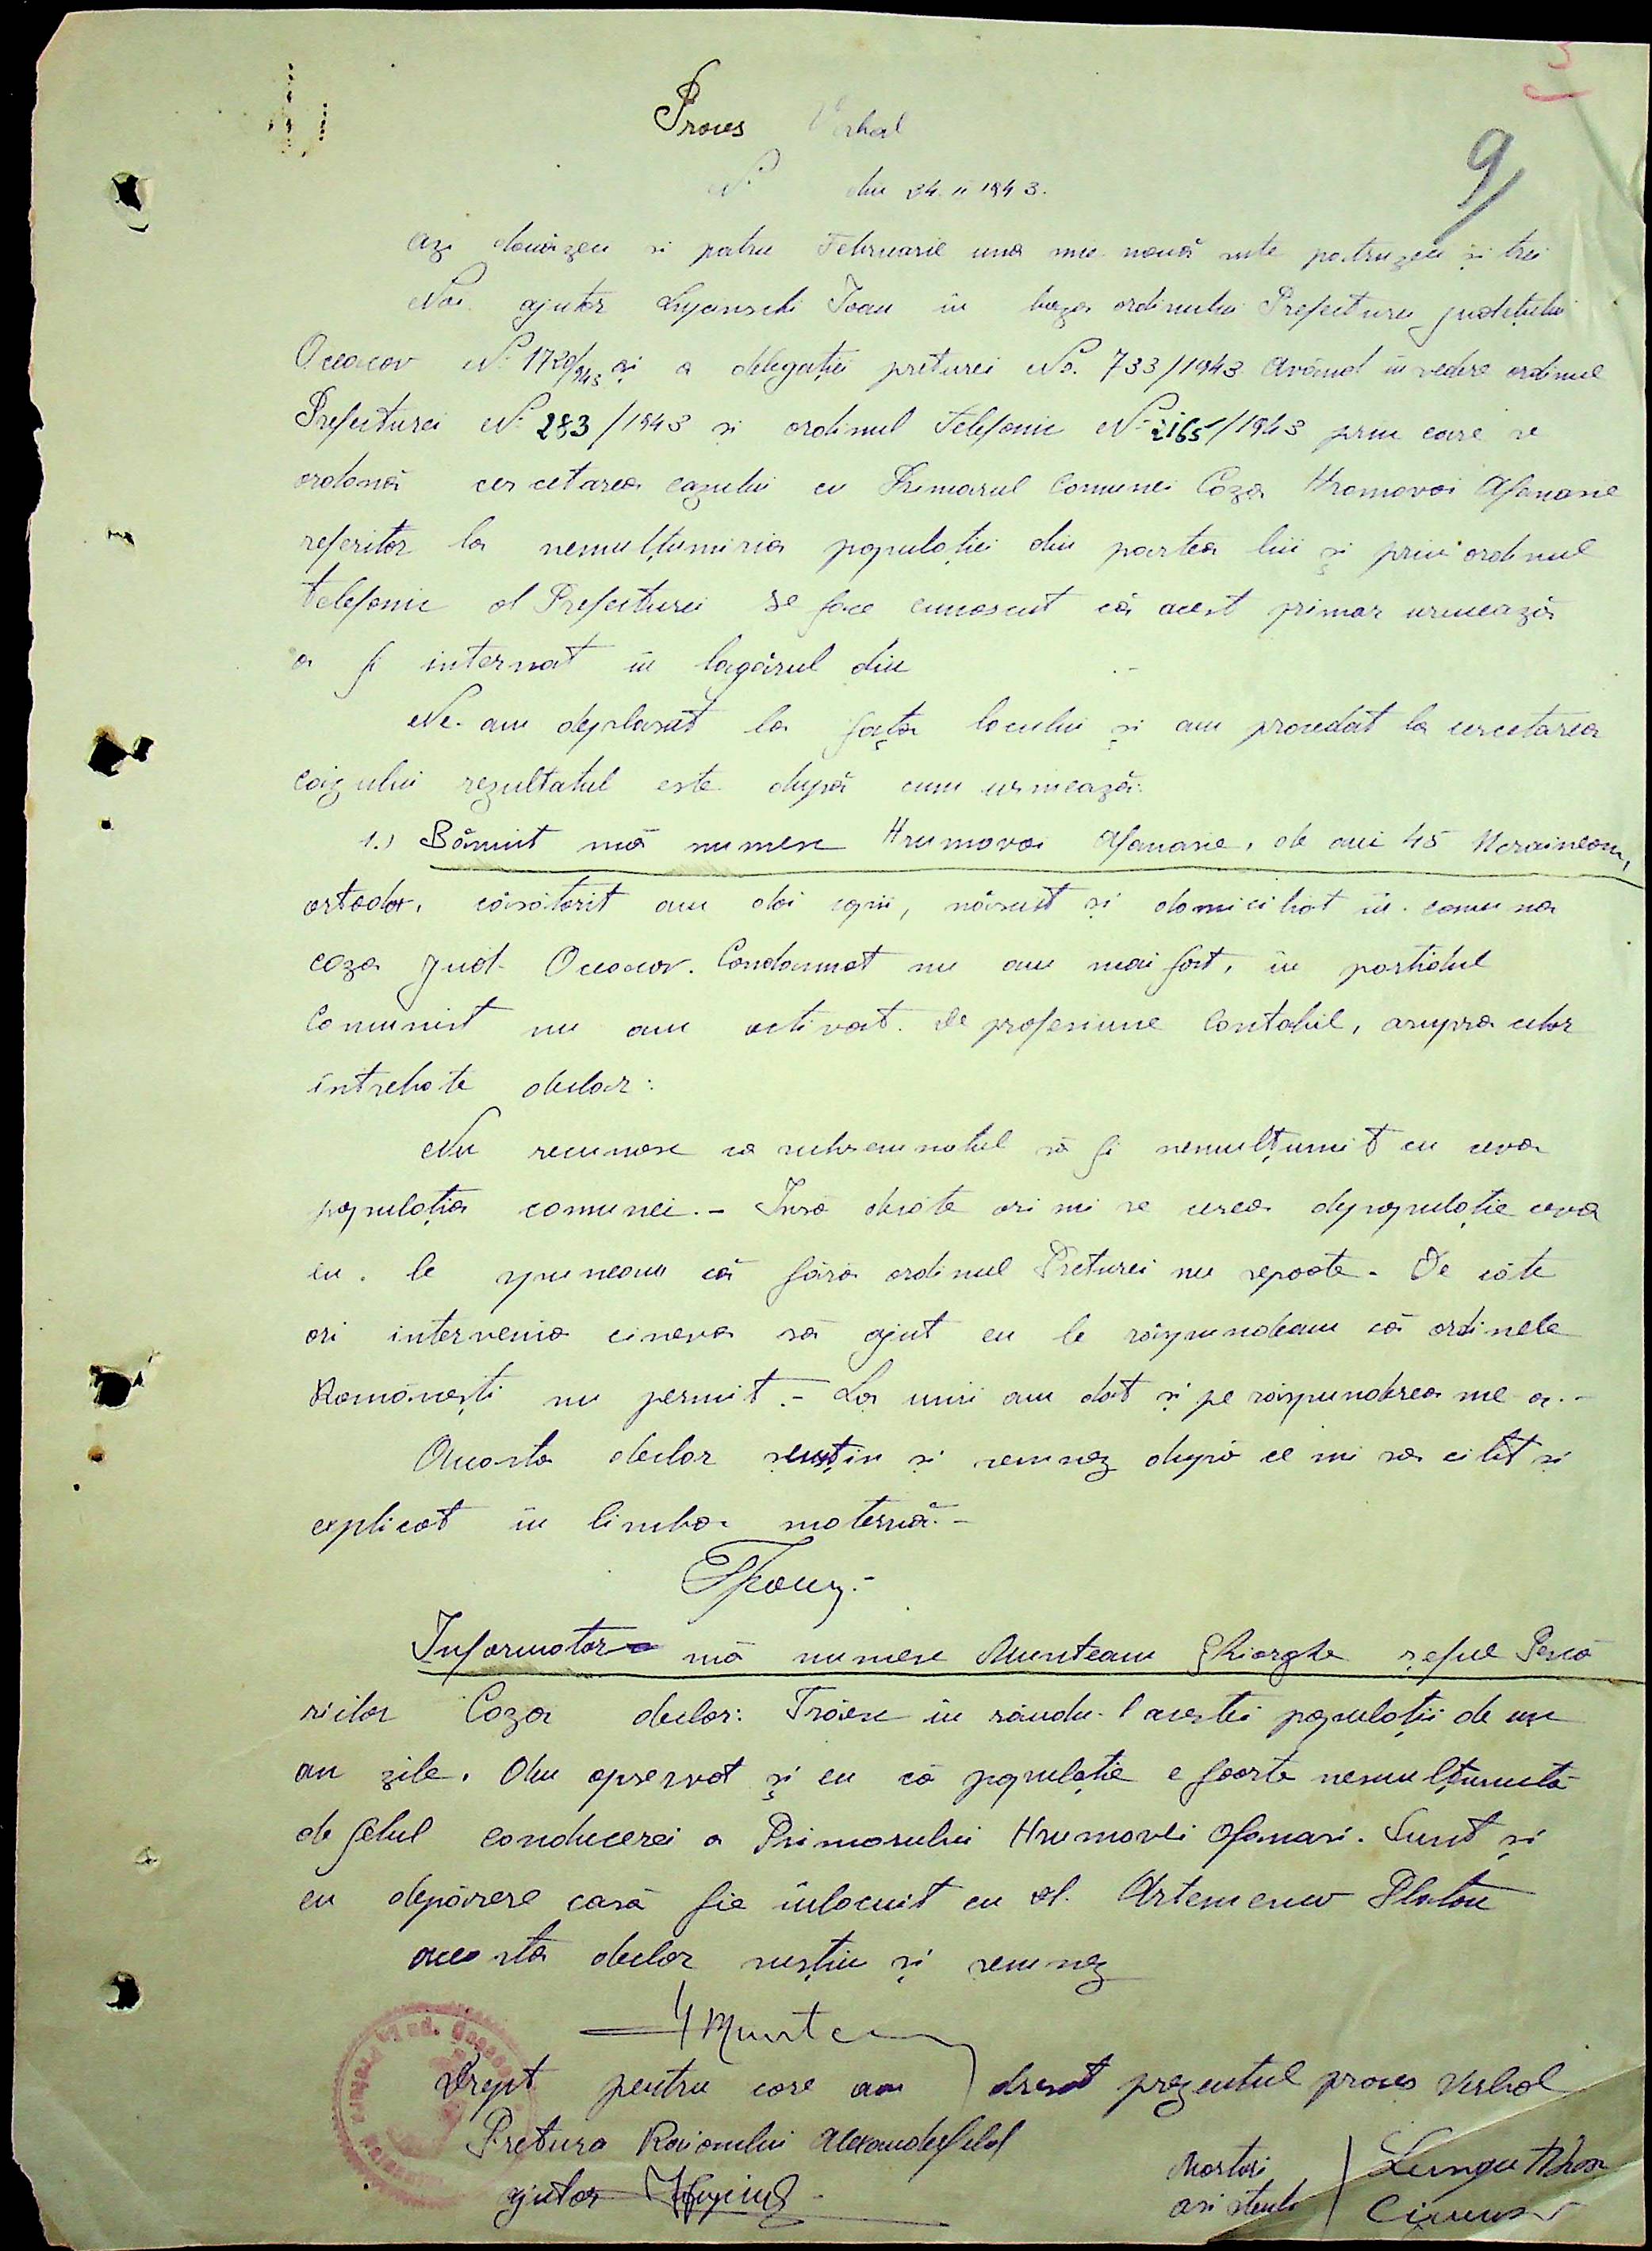 9
Proces Verbal
N. din 24. II 1943.
Azi douăzeci si patru Februarie una mie nouă sute patruzeci și trei
Noi ajutor Ioan în baza ordinului Prefecturii județului
Oceacov No. 1720/943 și a delegației preturei No. 733/1943 Având în vedere ordinul
Prefecturei No 283/1943 și ordinul Telefonic No 2165/1943 prin care se
ordonă cercetarea cazului cu Primarul Comunei Coza Hromovoi Afanasie
referitor la nemulțumiria populației din partea lui și prin ordinul
telefonic al Prefecturei se face cunoscut că acest primar urmează
a fi internat în lagărul din
Ne-am deplasat la fața locului și am procedat la cercetarea
cazului rezultatul este după cum urmează:
1.) Bănuit mă numesc Hrumovoi Afanasie, de ani 45 Ucrainean,
ortodox, căsătorit am doi copii, născut și domiciliat în comuna
Coza Jud. Oceacov. Condamnat nu am mai fost, în partidul
Comunist nu am activat. De profesiune Contabil, asupra celor
întrebate declar:
Nu recunosc ca subsemnatul să fi nemulțumit cu ceva
populația comunei.- Însă decâte ori mi se cerea depopulație ceva
eu le spuneam că fără ordinul Preturei nu sepoate. De câte
ori intervenia cineva să ajut eu le răspundeam că ordinele
Românești nu permit.- La unii am dat și pe răspunderea mea.-
Aceasta declar susțin și semnez după ce mi sa citit și
explicat în limba maternă.-
Informator mă numesc Munteanu Ghiorghe șeful Pescă
riilor Coza declar: Trăiesc în rândul acestei populații de un
an zile. Am opservat și eu că populație e foarte nemulțumită
de felul conducerei a Primarului Hrumovoi Afanasi. Sunt și
eu depărere casă fie înlocuit cu dl. Artemenco Platon
aceasta declar susțin și semnez
Drept pentru care am dresat prezentul proces Verbal
Pretura Raionului Alexanderfeld
ajutor
Martori
asistenti
Lungu